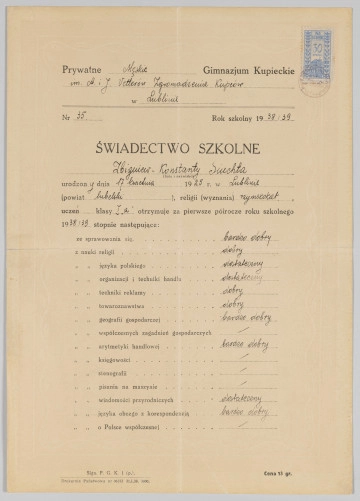 Prywatne Męskie Gimnazjum Kupieckie
im. A. i J. Vetterów Zgromadzenia Kupców
w Lublinie
Nr 35 Rok szkolny 1938/39
ŚWIADECTWO SZKOLNE
Zbigniew-Konstanty Suchta
urodzony dnia 17 kwietnia 1925 r. w Lublinie
(powiat lubelski), religii (wyznania) rzymsokat.
uczeń klasy I otrzymuje za pierwsze półrocze roku szkolnego
1938/39 stopnie następujące:
ze sprawowania się bardzo dobry
z nauki religii dobry
„ „ języka polskiego dostateczny
„ „ organizacji i techniki handlu dostateczny
„ „ techniki reklamy dobry
„ „ towaroznawstwa dobry
„ „ geografii gospodarczej bardzo dobry
„ „ współczesnych zagadnień gospodarczych /
„ „ arytmetyki handlowej bardzo dobry
„ „ księgowości /
„ „ stenografii /
„ „ pisania na maszynie /
„ „ wiadomości przyrodniczych dostateczny
„ „ języka obcego z korespondencją bardzo dobry
„ o Polsce współczesnej /
Cena 15 gr.